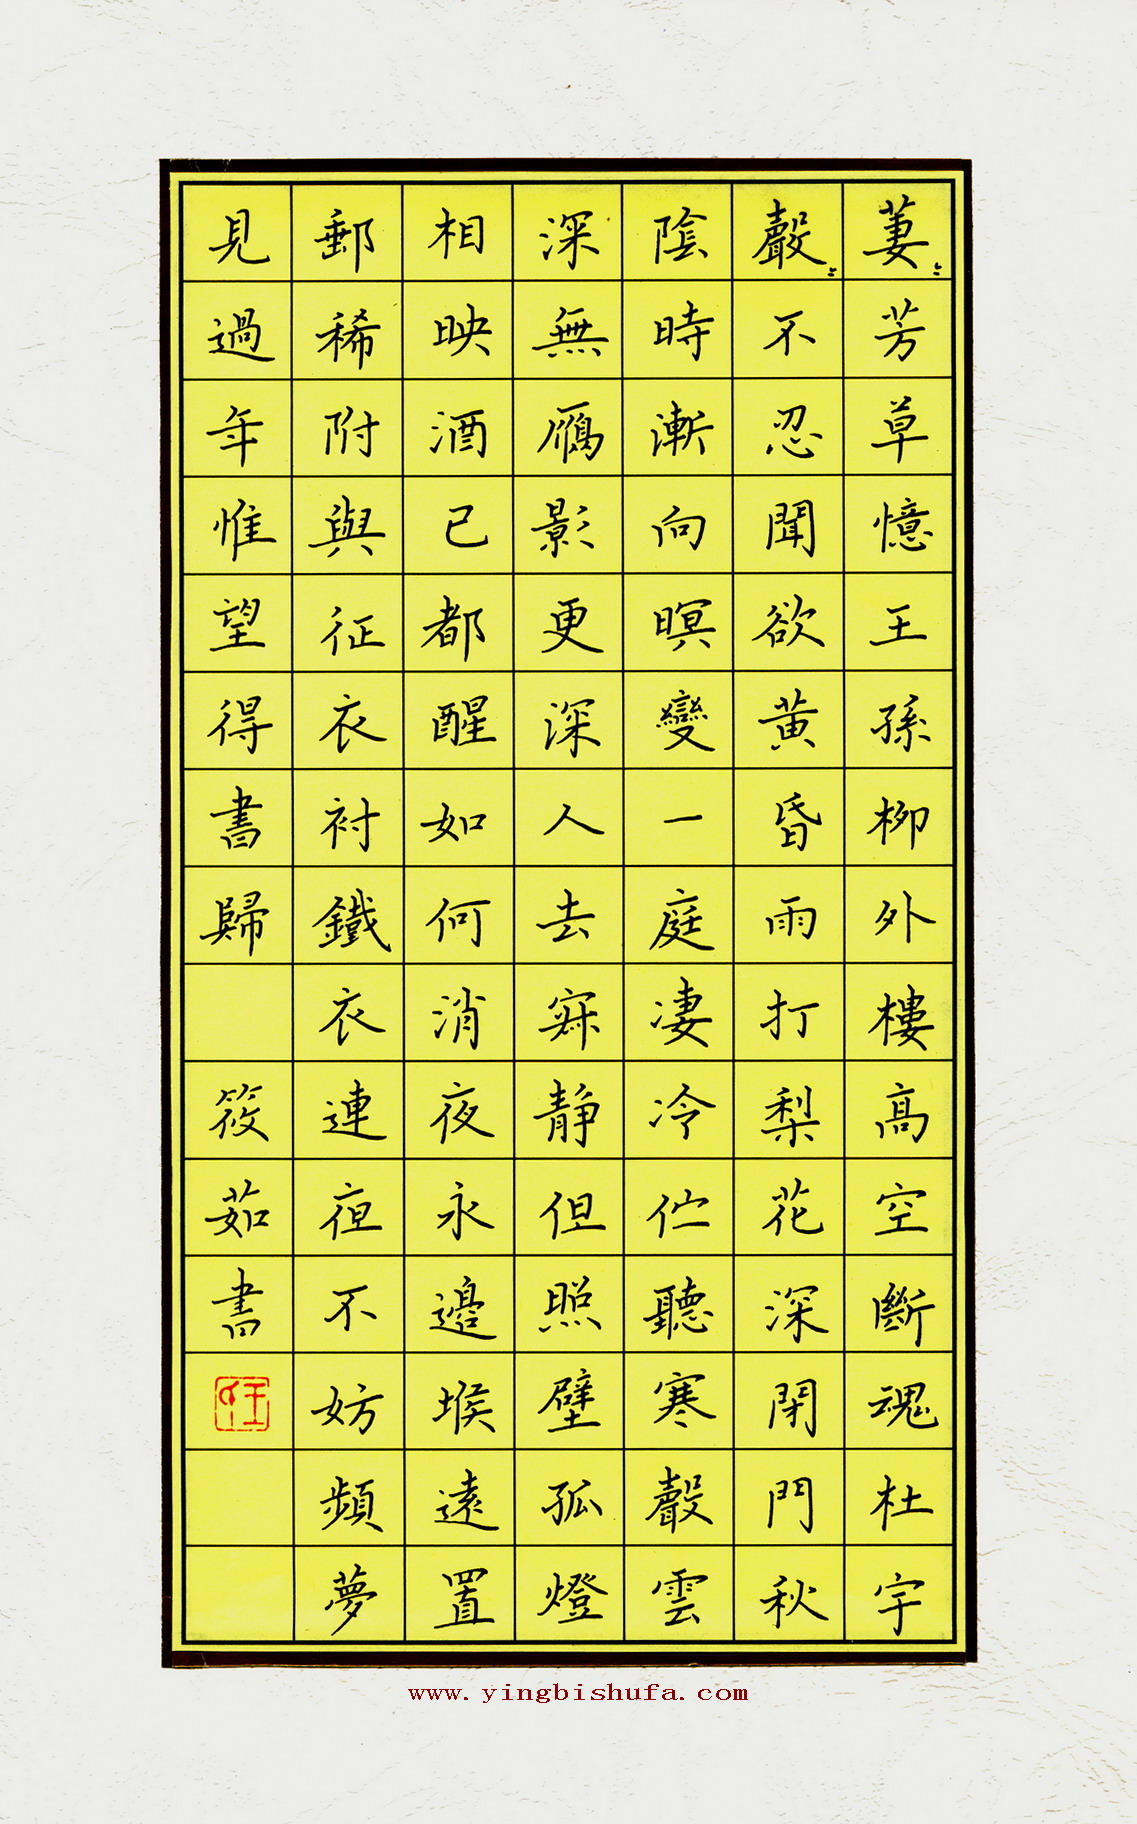 萋〻芳草憶王孫柳外樓高空斷魂杜宇
聲〻不忍聞欲黃昏雨打梨花深閉門秋
陰時漸向暝變一庭凄冷伫聽寒聲雲
深無鴈影更深人去寂靜但照壁孤燈
相映酒已都醒如何消夜永邊堠遠置
郵稀附與征衣衬鐵衣連夜不妨頻夢
見過年惟望得書歸
筱茹書
www.yingbishufa.com